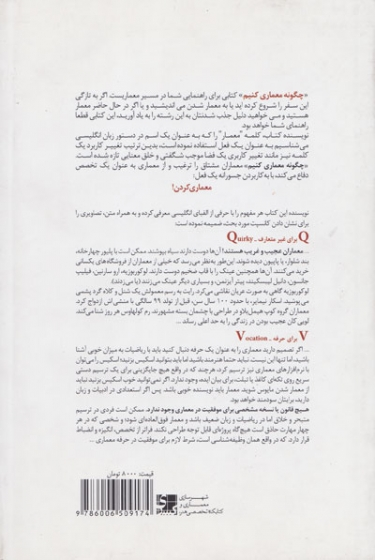 «چگونه معماری کنیم» کتابی برای راهنمایی شما در مسیر معماریست. اگر به تازگی
این سفر را شروع کرده اید یا به معمار شدن می اندیشید و یا اگر در حال حاضر معمار
هستید و می خواهید دلیل جذب شدنتان به این رشته را به یاد آورید، این کتاب قطعا
راهنمای شما خواهد بود.
نویسنده کتاب، کلمه "معمار" را که به عنوان یک اسم در دستور زبان انگلیسی
می شناسیم به عنوان یک فعل استفاده نموده است، بدین ترتیب تغییر کاربرد یک
کلمه نیز مانند تغییر کاربری یک فضا موجب شگفتی و خلق معنایی تازه شده است.
«چگونه معماری کنیم» معماران مشتاق را ترغیب و از معماری به عنوان یک تخصص
دفاع می‌کند، با به کار بردن جسورانه یک فعل:
معماری کردن!
نویسنده این کتاب هر مفهوم را با حرفی از الفبای انگلیسی معرفی کرده و به همراه متن، تصویری را
برای نشان دادن کانسپت مورد بحث، ضمیمه نموده است:
Q برای غیر متعارف - Quirky
معماران عجیب و غریب هستند! آن‌ها دوست دارند سیاه بپوشند. ممکن است با پلیور چهارخانه،
بند شلوار، یا پاپیون دیده شوند. این‌طور به‌نظر می‌رسد که خیلی از معماران از فروشگاه‌های یکسانی
خرید می‌کنند. آن‌ها همچنین عینک را با قاب ضخیم دوست دارند. لوکوربوزیه، ارو سارینن، فیلیپ
جانسون، دانیل لیبسکیند، پیتر آیزنمن، و بسیاری دیگر عینک می‌زدند (یا می‌زنند).
لوکوربوزیه گاهی به صورت عریان نقاشی می‌کرد. رایت به رسم معمولش یک شنل و کلاه گرد پشمی
می پوشید. اسکار نیمایر، با حدود ۱۰۰ سال سن، قبل از تولد ۹۹ سالگی با منشی اش ازدواج کرد.
معماران گروه کوپ هیمل‌بلاو در طراحی با چشمان بسته مشهورند. رم کولهاوس هر روز شنا می‌کند.
لویی کان عجیب بودن در زندگی را به حد اعلی رساند ...
V برای حرفه - Vocation
... اگر تصمیم دارید معماری را به عنوان یک حرفه دنبال کنید باید با ریاضیات به میزان خوبی آشنا
باشید، اما تنها این نیست. نباید حتما هنرمند باشید، اما باید بتوانید اسکیس بزنید. اسکیس را می‌توان
با نرم‌افزارهای معماری نیز ترسیم کرد، هرچند که در واقع هیچ جایگزینی برای یک ترسیم دستی
سریع روی تکه‌ای کاغذ یا تبلت، برای بیان ایده، وجود ندارد. اگر نمی‌توانید خوب اسکیس بزنید نباید
از معمار شدن مایوس شوید. معمار باید نویسنده خوبی باشد. پس اگر استعدادی در ادبیات و زبان
دارید، برایتان سودمند خواهد بود.
هیچ قانون یا نسخه مشخصی برای موفقیت در معماری وجود ندارد. ممکن است فردی در ترسیم
متبحر و خلاق اما در ریاضیات و زبان ضعیف باشد و معمار فوق‌العاده‌ای شود؛ و شخصی که در هر
چهار مهارت حاذق است هیچ‌گاه پروژه‌ای قابل توجه طراحی نکند. فراتر از تخصص، انگیزه و انضباط
قرار دارد، که در واقع همان وظیفه‌شناسی است، شرط لازم برای موفقیت در حرفه معماری ...
قیمت: ۸۰۰۰ تومان
9 786006 509174
شهرسازی
معماری و
کتابکده تخصصی هنر